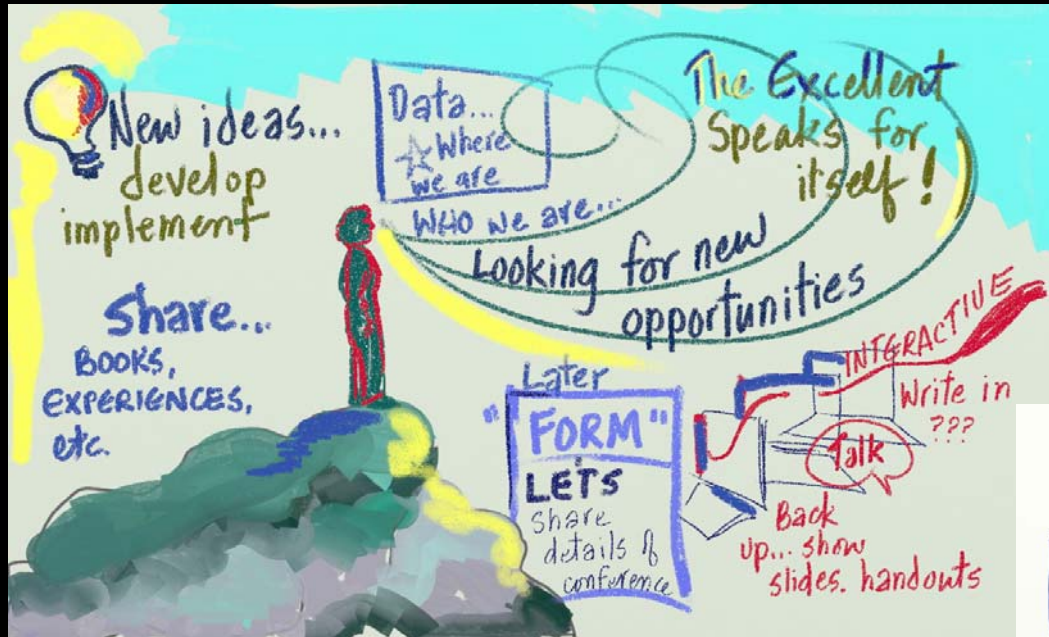 New ideas...
develop
implement
Share...
BOOKS,
EXPERIENCES,
etc.
Data...
☆ Where
we are
WHO we are...
The Excellent
Speaks for
itself!
Looking for new
opportunities
Later
"FORM"
LETS
share
details of
conference
INTERACTIVE
Write in
???
Talk
Back
up... show
slides. handouts